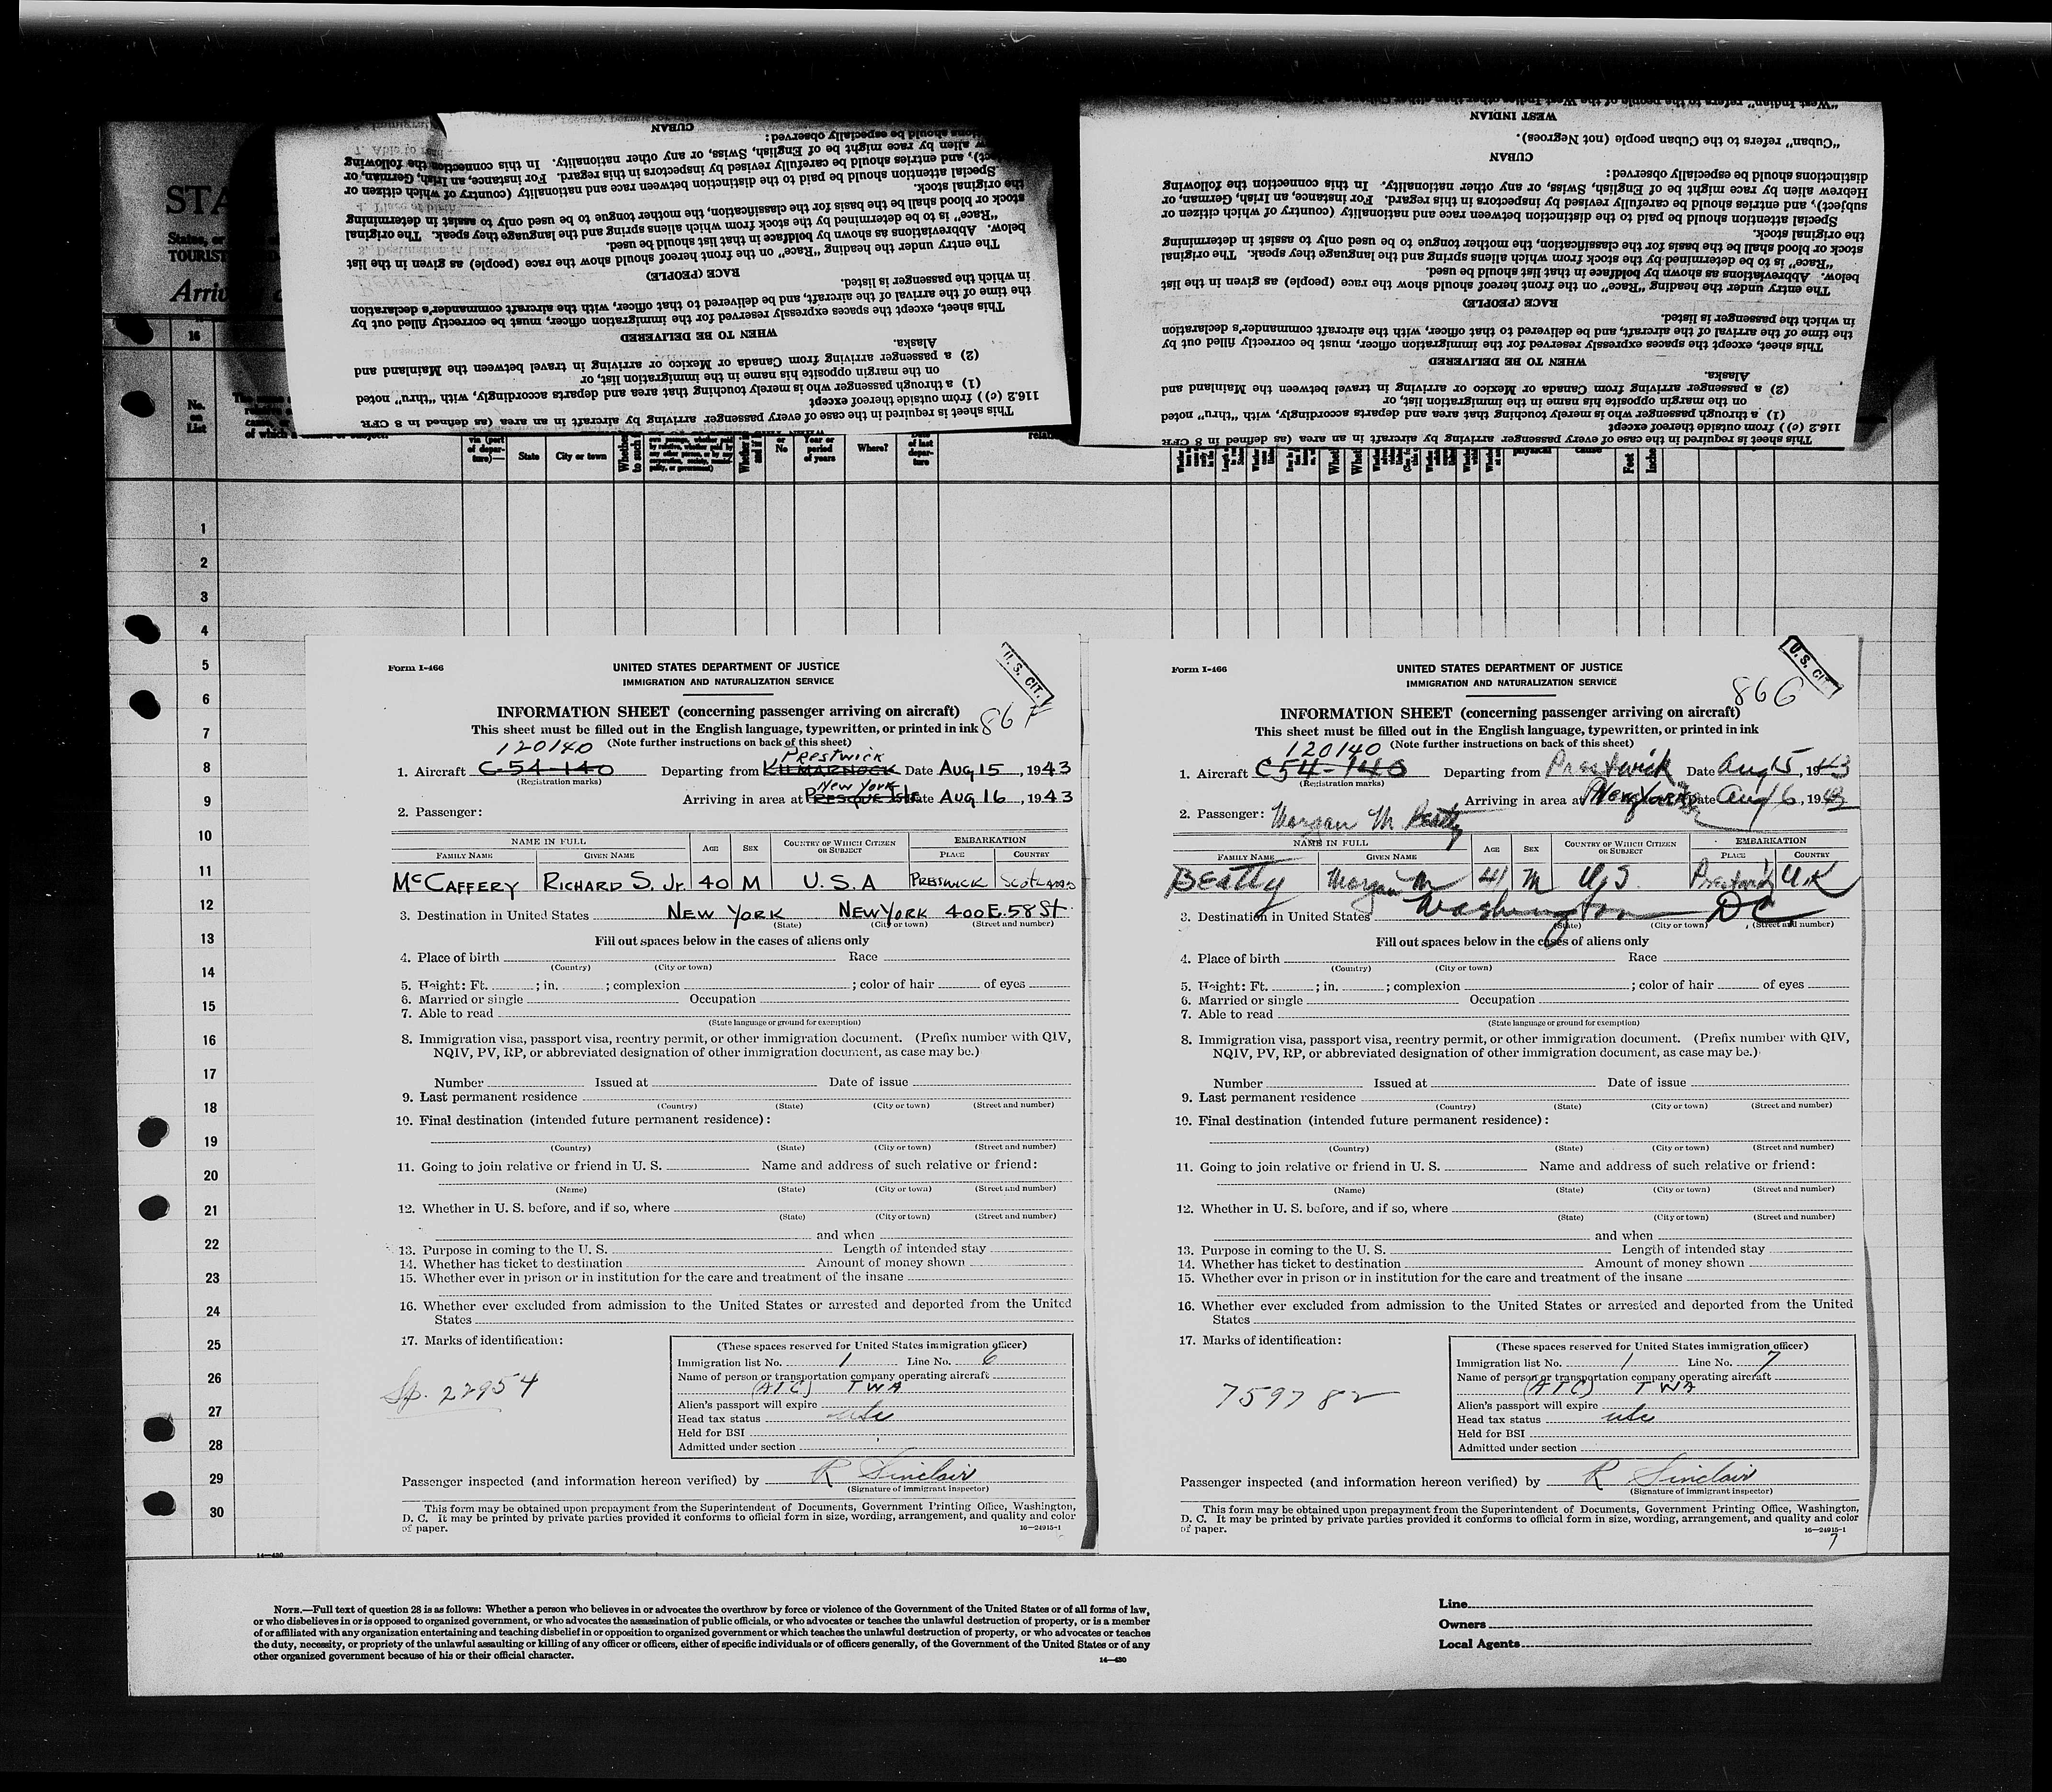 "Cuban" refers to the Cuban people (not Negroes).
WEST INDIAN
CUBAN
This sheet is required in the case of every passenger arriving by aircraft in an area (as defined in 8 CFR
116.2 (c)) from outside thereof except
(1) a through passenger who is merely touching that area and departs accordingly, with "thru" noted
on the margin opposite his name in the immigration list, or
(2) a passenger arriving from Canada or Mexico or arriving in travel between the Mainland and
Alaska.
WHEN TO BE DELIVERED
This sheet, except the spaces expressly reserved for the immigration officer, must be correctly filled out by
the time of the arrival of the aircraft, and be delivered to that officer, with the aircraft commander's declaration
in which the passenger is listed.
RACE (PEOPLE)
The entry under the heading "Race" on the front hereof should show the race (people) as given in the list
below. Abbreviations as shown by boldface in that list should be used.
"Race" is to be determined by the stock from which aliens spring and the language they speak. The original
stock or blood shall be the basis for the classification, the mother tongue to be used only to assist in determining
the original stock.
Special attention should be paid to the distinction between race and nationality (country of which citizen or
subject), and entries should be carefully revised by inspectors in this regard. For instance, an Irish, German, or
Hebrew alien by race might be of English, Swiss, or any other nationality. In this connection the following
distinctions should be especially observed:
STA
TOURIST
16
No. on List
State
City or town
Year or period of years
Where?
Feet
1
2
3
4
5
6
7
8
9
10
11
12
13
14
15
16
17
18
19
20
21
22
23
24
25
26
27
28
29
30
Form I-466
UNITED STATES DEPARTMENT OF JUSTICE
IMMIGRATION AND NATURALIZATION SERVICE
U. S. CIT.
INFORMATION SHEET (concerning passenger arriving on aircraft)
This sheet must be filled out in the English language, typewritten, or printed in ink
(Note further instructions on back of this sheet)
120140 PRESTWICK
1. Aircraft C-54-140 Departing from KILMARNOCK Date AUG 15, 1943
(Registration marks)
New York
Arriving in area at PRESQUE ISLE Date AUG 16, 1943
2. Passenger:
NAME IN FULL AGE SEX COUNTRY OF WHICH CITIZEN OR SUBJECT EMBARKATION
FAMILY NAME GIVEN NAME PLACE COUNTRY
McCAFFERY RICHARD S. Jr. 40 M U.S.A PRESWICK SCOTLAND
3. Destination in United States NEW YORK NEW YORK 400 E. 58 St.
(State) (City or town) (Street and number)
Fill out spaces below in the cases of aliens only
4. Place of birth Race
(Country) (City or town)
5. Height: Ft. ; in. ; complexion ; color of hair of eyes
6. Married or single Occupation
7. Able to read
(State language or ground for exemption)
8. Immigration visa, passport visa, reentry permit, or other immigration document. (Prefix number with QIV,
NQIV, PV, RP, or abbreviated designation of other immigration document, as case may be.)
Number Issued at Date of issue
9. Last permanent residence
(Country) (State) (City or town) (Street and number)
10. Final destination (intended future permanent residence):
(Country) (State) (City or town) (Street and number)
11. Going to join relative or friend in U. S. Name and address of such relative or friend:
(Name) (State) (City or town) (Street and number)
12. Whether in U. S. before, and if so, where
(State) (City or town) (Street and number)
and when
13. Purpose in coming to the U. S. Length of intended stay
14. Whether has ticket to destination Amount of money shown
15. Whether ever in prison or in institution for the care and treatment of the insane
16. Whether ever excluded from admission to the United States or arrested and deported from the United
States
17. Marks of identification:
Sp. 22954
(These spaces reserved for United States immigration officer)
Immigration list No. 1 Line No. 6
Name of person or transportation company operating aircraft
(ATC) TWA
Alien's passport will expire
Head tax status usc
Held for BSI
Admitted under section
Passenger inspected (and information hereon verified) by R Sinclair
(Signature of immigrant inspector)
This form may be obtained upon prepayment from the Superintendent of Documents, Government Printing Office, Washington,
D. C. It may be printed by private parties provided it conforms to official form in size, wording, arrangement, and quality and color
of paper.
16—24915-1
Form I-466
UNITED STATES DEPARTMENT OF JUSTICE
IMMIGRATION AND NATURALIZATION SERVICE
U.S. CIT.
866
INFORMATION SHEET (concerning passenger arriving on aircraft)
This sheet must be filled out in the English language, typewritten, or printed in ink
(Note further instructions on back of this sheet)
120140
1. Aircraft C54-140 Departing from Prestwick Date Aug 15, 1943
(Registration marks)
Arriving in area at New York Date Aug 16, 1943
2. Passenger: Morgan M Beatty
NAME IN FULL AGE SEX COUNTRY OF WHICH CITIZEN OR SUBJECT EMBARKATION
FAMILY NAME GIVEN NAME PLACE COUNTRY
Beatty Morgan M 41 M U.S. Prestwick U.K
3. Destination in United States Washington DC
(State) (City or town) (Street and number)
Fill out spaces below in the cases of aliens only
4. Place of birth Race
(Country) (City or town)
5. Height: Ft. ; in. ; complexion ; color of hair of eyes
6. Married or single Occupation
7. Able to read
(State language or ground for exemption)
8. Immigration visa, passport visa, reentry permit, or other immigration document. (Prefix number with QIV,
NQIV, PV, RP, or abbreviated designation of other immigration document, as case may be.)
Number Issued at Date of issue
9. Last permanent residence
(Country) (State) (City or town) (Street and number)
10. Final destination (intended future permanent residence):
(Country) (State) (City or town) (Street and number)
11. Going to join relative or friend in U. S. Name and address of such relative or friend:
(Name) (State) (City or town) (Street and number)
12. Whether in U. S. before, and if so, where
(State) (City or town) (Street and number)
and when
13. Purpose in coming to the U. S. Length of intended stay
14. Whether has ticket to destination Amount of money shown
15. Whether ever in prison or in institution for the care and treatment of the insane
16. Whether ever excluded from admission to the United States or arrested and deported from the United
States
17. Marks of identification:
759782
(These spaces reserved for United States immigration officer)
Immigration list No. 1 Line No. 7
Name of person or transportation company operating aircraft
(ATC) TWA
Alien's passport will expire
Head tax status usc
Held for BSI
Admitted under section
Passenger inspected (and information hereon verified) by R Sinclair
(Signature of immigrant inspector)
This form may be obtained upon prepayment from the Superintendent of Documents, Government Printing Office, Washington,
D. C. It may be printed by private parties provided it conforms to official form in size, wording, arrangement, and quality and color
of paper.
16—24915-1
7
NOTE.—Full text of question 28 is as follows: Whether a person who believes in or advocates the overthrow by force or violence of the Government of the United States or of all forms of law,
or who disbelieves in or is opposed to organized government, or who advocates the assassination of public officials, or who advocates or teaches the unlawful destruction of property, or is a member
of or affiliated with any organization entertaining and teaching disbelief in or opposition to organized government or which teaches the unlawful destruction of property, or who advocates or teaches
the duty, necessity, or propriety of the unlawful assaulting or killing of any officer or officers, either of specific individuals or of officers generally, of the Government of the United States or of any
other organized government because of his or their official character.
14—430
Line
Owners
Local Agents